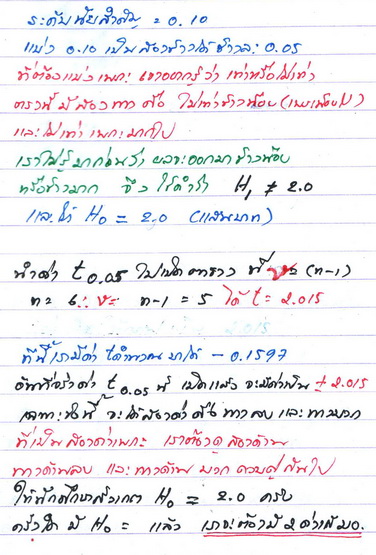 ระดับนัยสำคัญ = 0.10
แบ่ง 0.10 เป็นสองข้างได้ข้างละ 0.05
ที่ต้องแบ่งเพราะ เขาอยากรู้ว่า เท่าหรือไม่เท่า
ตรงนี้มีสองทาง คือ ไม่เท่าข้างน้อย (น้อยไป)
และไม่เท่า เพราะมากไป
เราไม่รู้มาก่อนว่า ผลจะออกมาข้างน้อย
หรือข้างมาก จึงใช้คำว่า H₁ ≠ 2.0
และให้ H₀ = 2.0 (แสนบาท)
นำค่า t 0.05 ไปเปิดตาราง ที่ (n-1)
n = 6 ∴ n-1 = 5 ได้ t = 2.015
2.015
ทีนี้เรามีค่า t คำนวณ มาได้ - 0.1597
อันที่จริงค่า t 0.05 นี้ เปิดแล้ว จะมีค่าเป็น ± 2.015
เฉพาะฉะนั้น จะได้สองค่า คือ ทางลบ และ ทางบวก
ที่เป็นสองค่าเพราะ เราต้องดูสองด้าน
ทางด้านลบ และทางด้าน บวก ควบคู่กันไป
ให้นักศึกษาสังเกต H₀ = 2.0 ครับ
ถ้ามี H₀ = แล้ว เราจะต้องมี 2 ค่าเสมอ.